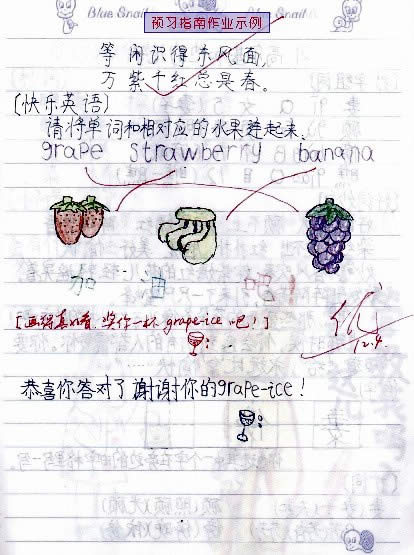 Blue Snail
预习指南作业示例
Blue Snail
等闲识得东风面,
万紫千红总是春。
(快乐英语)
请将单词和相对应的水果连起来.
grape strawberry banana
加 油 吧!
[画得真好看,奖你一杯 grape-ice 吧!]
优
12.4.
恭喜你答对了谢谢你的grape-ice!